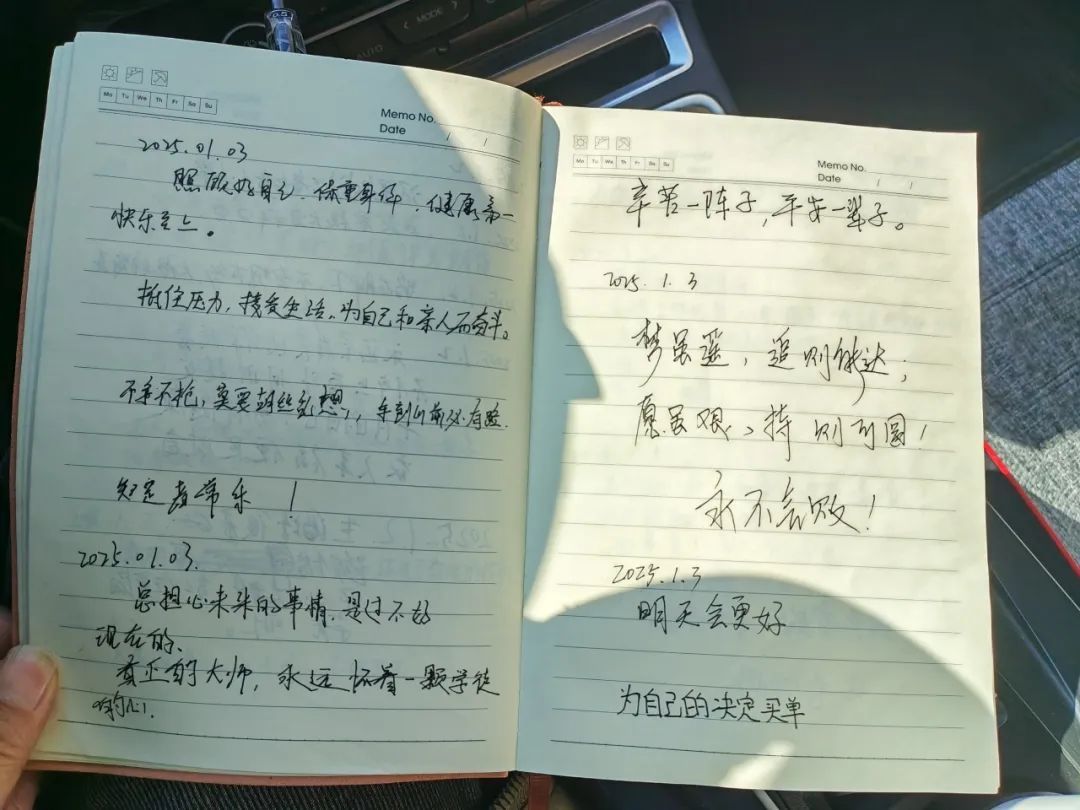 MODE
AUTO
Mo Tu We Th Fr Sa Su
Memo No.
Date / /
2025.01.03
照顾好自己,保重身体,健康第一
快乐至上。
抗住压力,接受生活,为自己和亲人而奋斗。
不矛不枪,莫要胡丝乱想,车到山前必有路.
知足者常乐!
2025.01.03.
总担心未来的事情,是过不好
现在的、
真正的大师,永远怀着一颗学徒
的心.
Mo Tu We Th Fr Sa Su
Memo No.
Date / /
辛苦一阵子,平安一辈子。
2025.1.3
梦虽遥,追则能达;
愿虽艰、持则可圆!
永不言败!
2025.1.3
明天会更好
为自己的决定买单